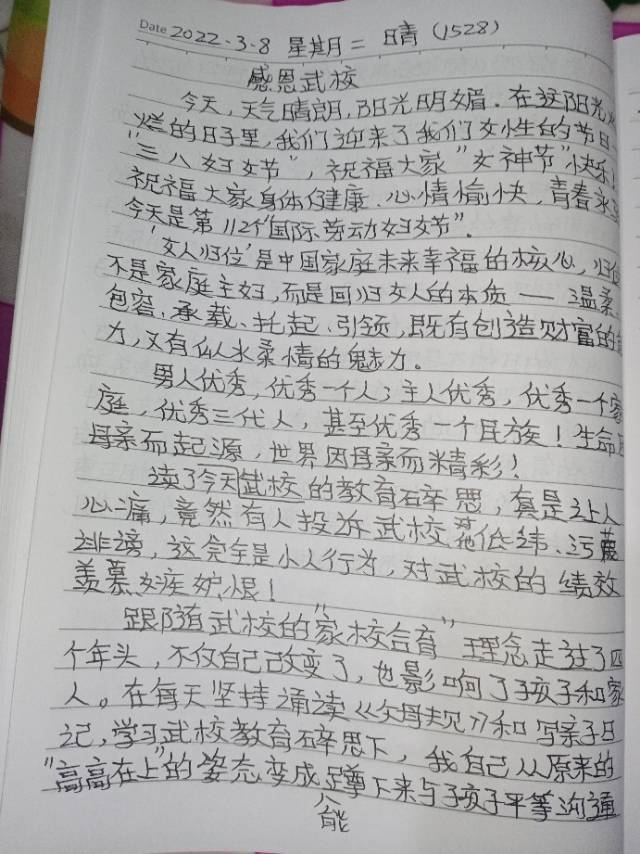 Date 2022.3.8 星期二 晴（1528）
感恩武校
今天，天气晴朗，阳光明媚．在这阳光
烂的日子里，我们迎来了我们女性的节日
"三八妇女节"，祝福大家"女神节"快乐！
祝福大家身体健康．心情愉快，青春永
今天是第112个"国际劳动妇女节"．
'女人归位'是中国家庭未来幸福的核心，归位
不是家庭主妇，而是回归女人的本质——温柔、
包容、承载、托起、引领，既有创造财富的
力，又有似水柔情的魅力。
男人优秀，优秀一个人；主人优秀，优秀一个家
庭，优秀三代人，甚至优秀一个民族！生命
母亲而起源，世界因母亲而精彩！
读了今天武校的教育碎思，真是让人
心痛，竟然有人投诉武校 对他 污蔑
诽谤，这完全是小人行为，对武校的绩效
羡慕嫉妒恨！
跟随武校的"家校合育"理念走过了四
个年头，不仅自己改变了，也影响了孩子和家
人。在每天坚持诵读《父母规》和写亲子日
记，学习武校教育碎思下，我自己从原来的
"高高在上"的姿态变成蹲下来与孩子平等沟通
能